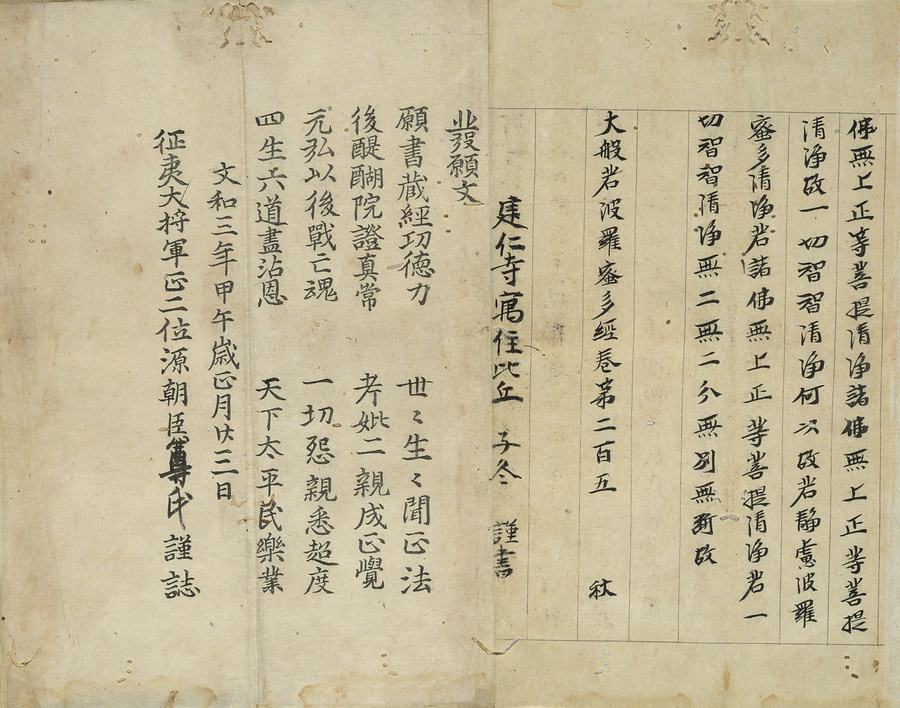 佛無上正等菩提清淨諸佛無上正等菩提
清淨故一切智智清淨何以故若靜慮波羅
蜜多清淨若諸佛無上正等菩提清淨若一
切智智清淨無二無二分無別無斷故
大般若波羅蜜多經卷第二百五 秋
建仁寺寓住比丘 子冬 謹書
發願文
願書藏經功德力 世〻生〻聞正法
後醍醐院證真常 考妣二親成正覺
元弘以後戰亡魂 一切怨親悉超度
四生六道盡沾恩 天下太平民樂業
文和三年甲午歲正月廿三日
征夷大將軍正二位源朝臣尊氏謹誌